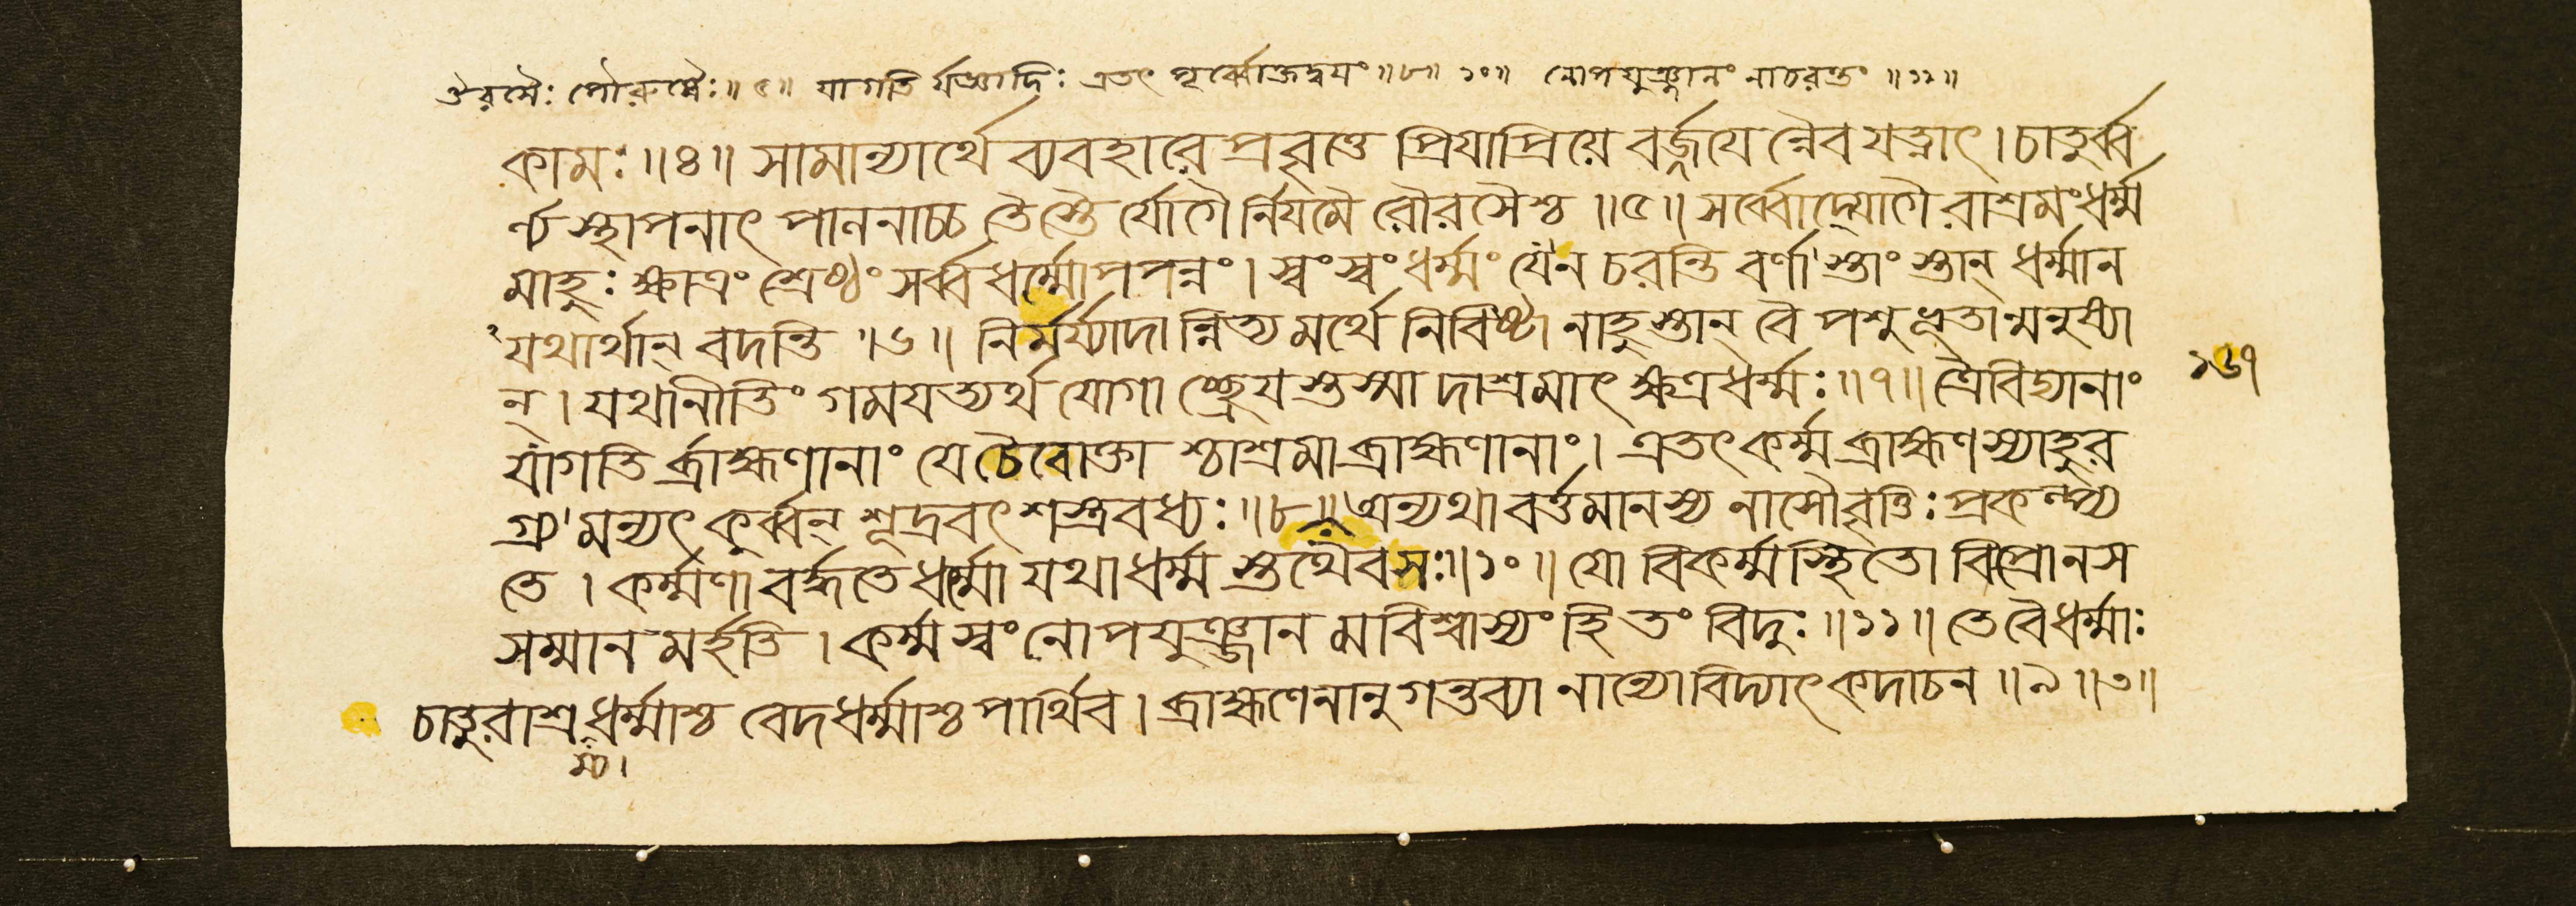 ঔরসৈঃ পৌরুষৈঃ॥ ৫॥ যাগতি র্যজ্ঞাদিঃ এতৎ পূর্ব্বোক্তদ্বয়ং ॥৮॥ ১০॥ নোপযুঞ্জানং নাচরন্তং ॥১১॥
কামঃ ॥৪॥ সামান্যার্থে ব্যবহারে প্রবৃত্তে প্রিয়াপ্রিয়ে বর্জ্জয়ে ন্নৈব যত্নাৎ। চাতুর্ব্ব
র্ণ্য স্থাপনাৎ পালনাচ্চ তৈস্তৈ র্যোগৈ র্নিয়মৈ রৌরসৈশ্চ ॥৫॥ সর্ব্বোদ্যোগৈ রাশ্রমং ধর্ম্ম
মাহুঃ ক্ষাত্রং শ্রেষ্ঠং সর্ব্ব ধর্ম্মোপপন্নং। স্বং স্বং ধর্ম্মং যেন চরন্তি বর্ণা স্তাং স্তান্ ধর্ম্মান
যথার্থান্ বদন্তি ॥৬॥ নির্মর্য্যাদা ন্নিত্য মর্থে নিবিষ্টা নাহুস্তান্ বৈ পশুভূতান্মনুষ্যা
ন্। যথানীতিং গময়ত্যর্থ যোগা চ্ছ্রেয় স্তস্মা দাশ্রমাৎ ক্ষত্রধর্ম্মঃ ॥৭॥ ত্রৈবিদ্যানাং
১৬৭
যাগতি র্ব্রাহ্মণানাং যে চৈবোক্তা শ্চাশ্রমা ব্রাহ্মণানাং। এতৎ কর্ম্ম ব্রাহ্মণ স্যাহুর
গ্র্য মন্যৎ কুর্ব্বন্ শূদ্রবৎ শস্ত্রবধ্যঃ ॥৮॥ অন্যথা বর্ত্তমানস্য নাসৌ বৃত্তিঃ প্রকল্প্য
তে । কর্ম্মণা বর্দ্ধতে ধর্ম্মো যথাধর্ম্ম স্তথৈবসঃ॥১০॥ যো বিকর্ম্ম স্থিতো বিপ্রোনস
সম্মান মর্হতি । কর্ম্ম স্বং নোপযুঞ্জান মবিশ্বাস্যং হি তং বিদুঃ ॥১১॥ তে বৈধর্ম্মাঃ
চাতুরাশ্রধর্ম্মাশ্চ বেদধর্ম্মাশ্চ পার্থিব। ব্রাহ্মণেনানুগন্তব্যা নান্যো বিদ্যাৎ কদাচন ॥৯॥৩॥
ম্য।